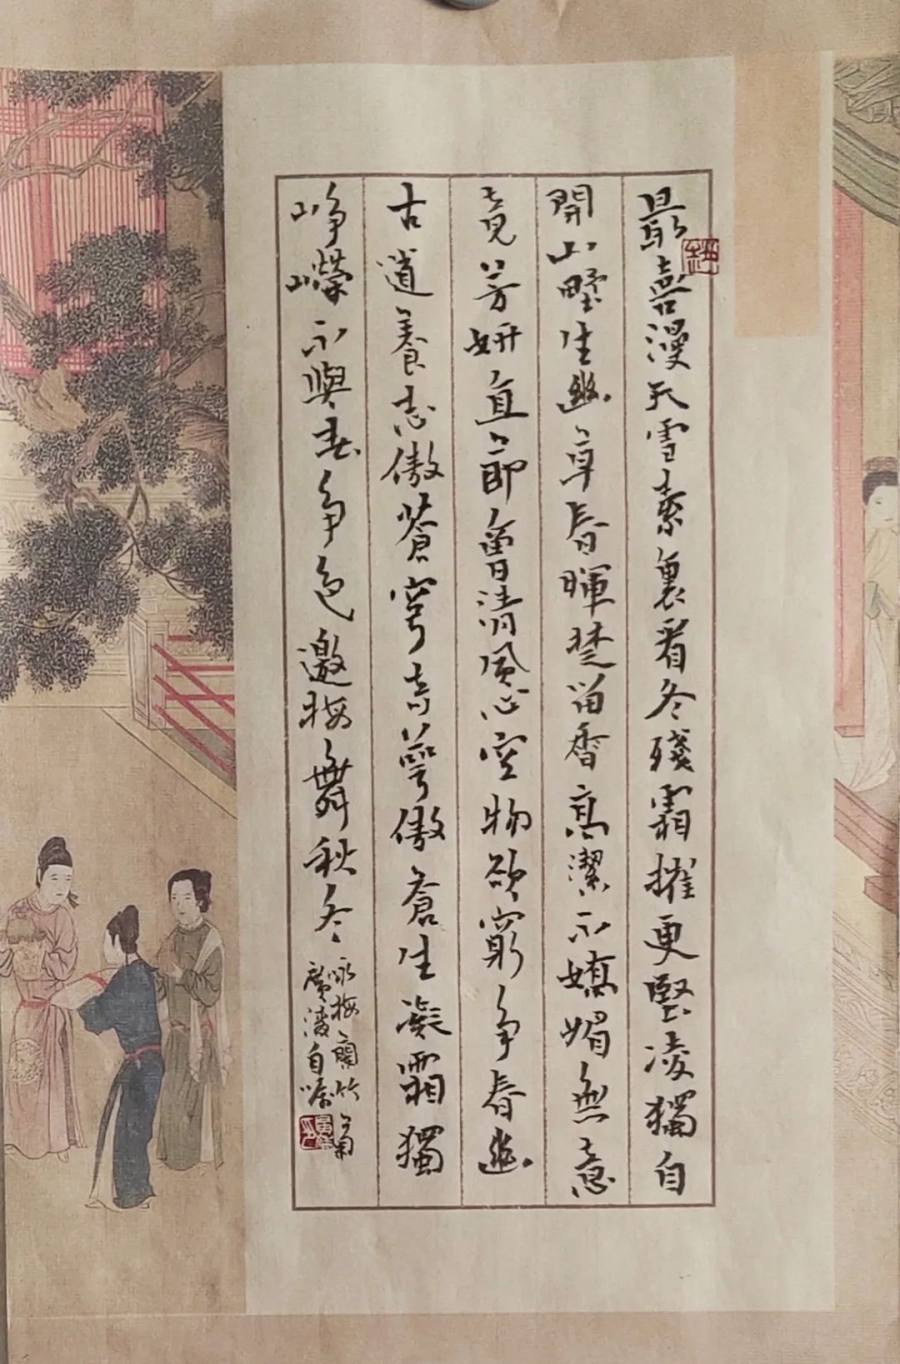 最喜漫天雪素裹看冬殘霜摧更堅凌獨自
開山野生幽草春暉楚留香高潔不媚無意
竟芳妍直節清風心空物欲窮爭春幽
古道養志傲蒼穹萼傲倉生凝霜獨
崢嶸不與春爭色邀梅舞秋冬
詠梅蘭竹菊
廣陵自